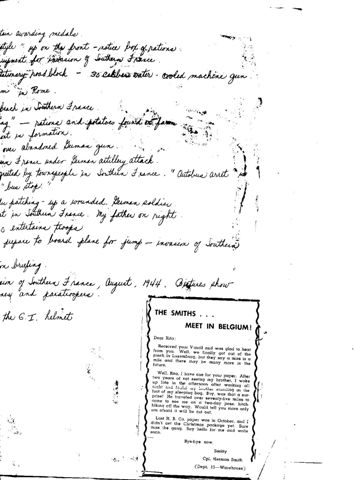 awarding medals
style" up on the front - notice box of rations.
equipment for invasion of Southern France.
Stationary road block - 30 calibre water-cooled machine gun
in Rome.
beach in Southern France
" - rations and potatoes found on farm
in formation.
over abandoned German gun.
France under German artillery attack.
greeted by townspeople in Southern France. "Autobus arret
"bus stop"
patching-up a wounded German soldier
in Southern France. My father on right
entertains troops
prepare to board plane for jump - invasion of Southern
briefing.
invasion of Southern France, August, 1944. Pictures show
and paratroopers.
the G.I. helmet
THE SMITHS . . .
MEET IN BELGIUM!
Dear Rita:
Received your V-mail and was glad to hear
from you. Well, we finally got out of the
mud in Luxemburg, but they say a mine is a
mile and there may be many more in the
future.
Well, Rita, I have one for your paper. After
two years of not seeing my brother, I woke
up late in the afternoon after working all
night and found my brother standing at the
foot of my sleeping bag. Boy, was that a sur-
prise! He traveled over seventy-five miles to
come to see me on a two-day pass. Some
hiking all the way. Would tell you more only
am afraid it will be cut out.
Last H. B. Co. paper was in October, and I
didn't get the Christmas package yet. Sure
miss the gang. Say hello for me and write
soon.
Bye-bye now
Smitty
Cpl. Herman Smith
(Dept. 15—Warehouse)